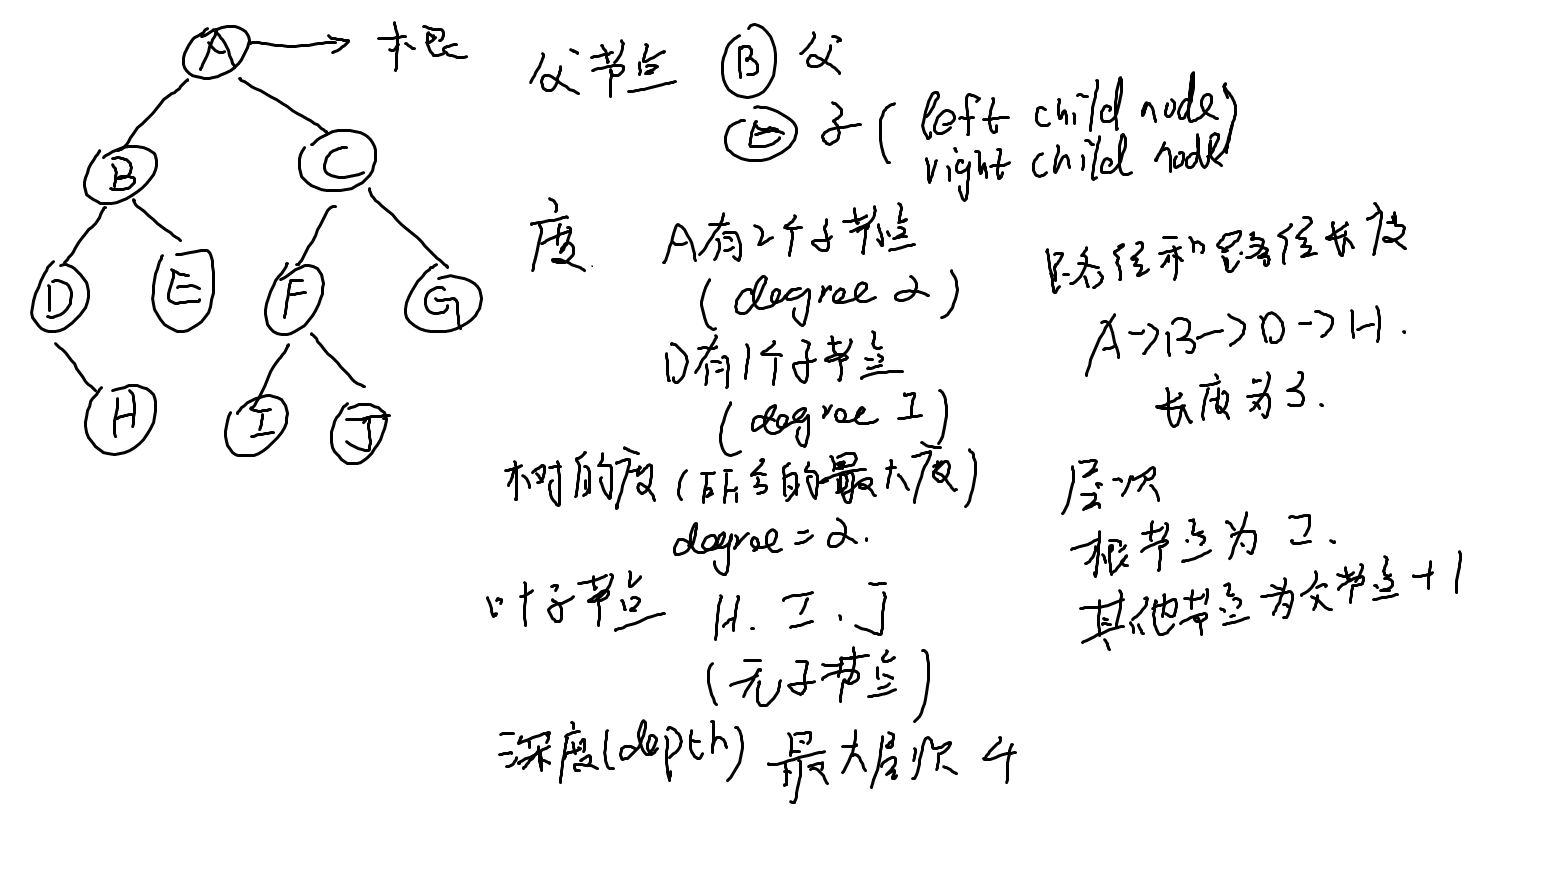 A → 根
B
C
D
E
F
G
H
I
J
父节点 B 父
子 ( left child node
right child node )
度
A有2个子节点
( degree 2 )
D有1个子节点
( degree 1 )
树的度 ( 所含的最大度 )
degree = 2.
叶子节点 H. I. J
( 无子节点 )
深度(depth) 最大层次 4
路径和路径长度
A->B->D->H.
长度为3.
层次
根节点为 1.
其他节点为父节点+1